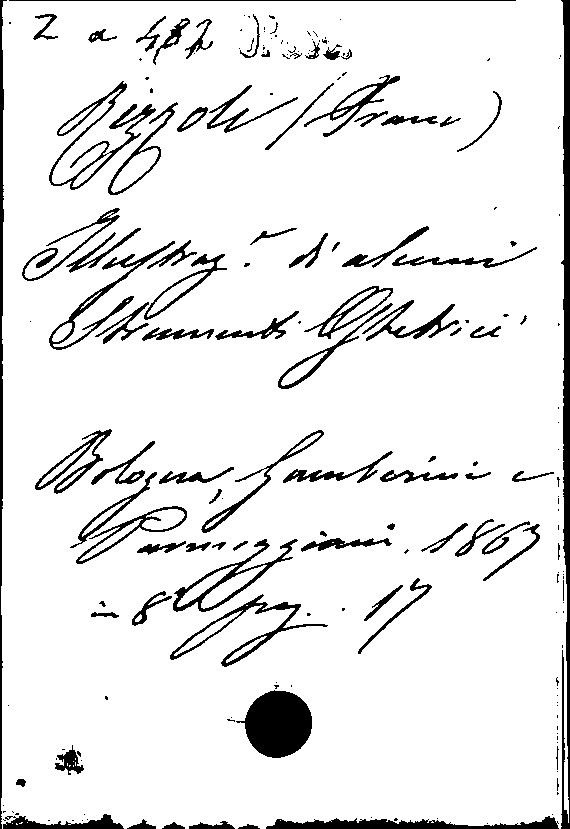 Z a 482
Rizzoli (Franc)
Illustraz.e di alcuni
Strumenti Ostetrici
Bologna, Gamberini e
Parmeggiani. 1863
in 8º pag. 17